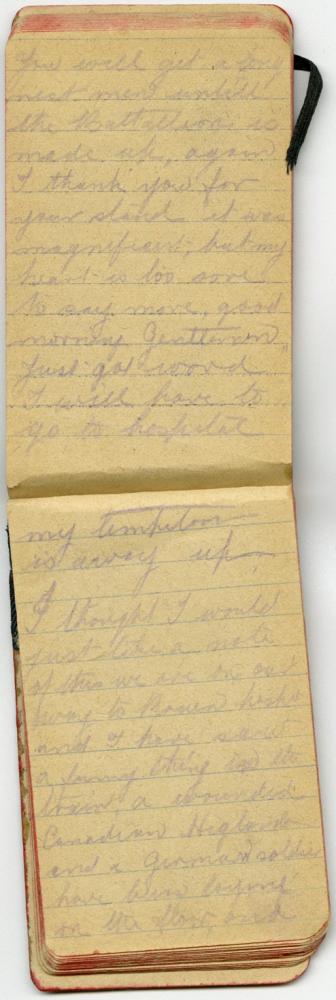 You will get a long
rest men untill
the Battallion is
made up, again
I thank you for
your stand it was
magnificent, but my
heart is too sore
to say more, good
morning Gentlemen"
Just got word
I will have to
go to hospital
my tempeture
is away up
I thought I would
just take a note
of this we are on our
way to Rouen
and I have seen
a funny thing in the
train, a wounded
Canadian Higlander
and a German soldier
have been laying
on the floor, and